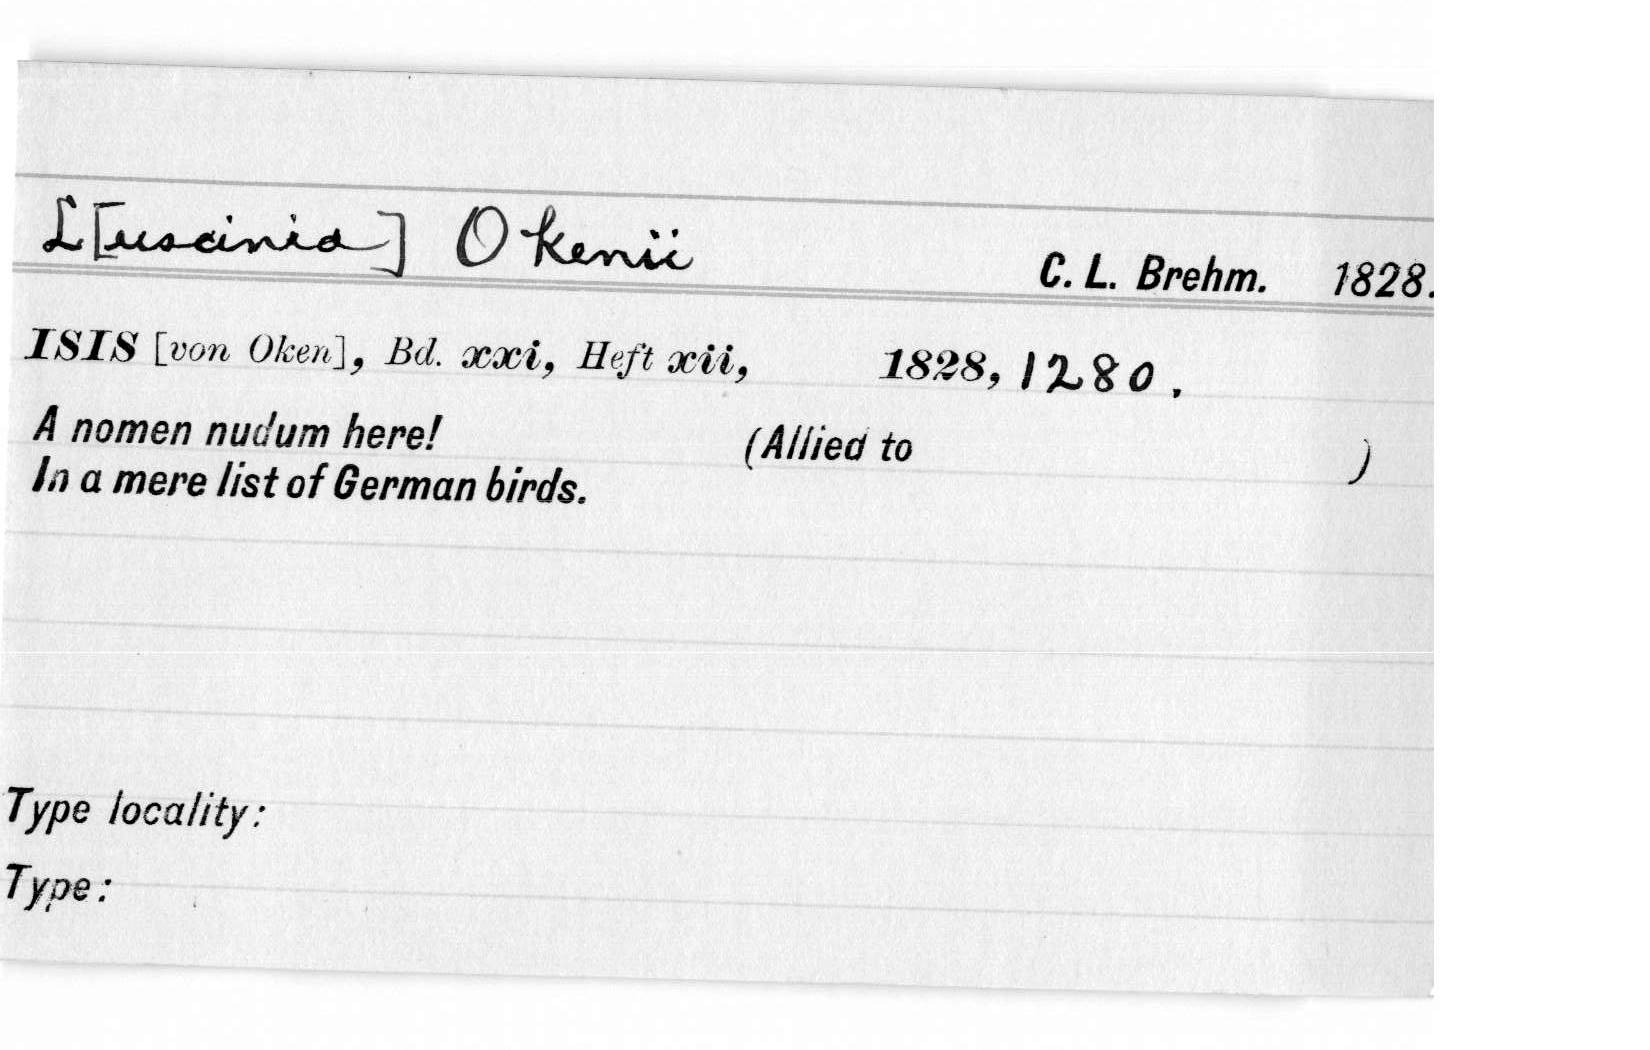 L[uscinia] Okenii
C. L. Brehm. 1828.
ISIS [von Oken], Bd. xxi, Heft xii, 1828, 1280.
A nomen nudum here! (Allied to )
In a mere list of German birds.
Type locality:
Type: